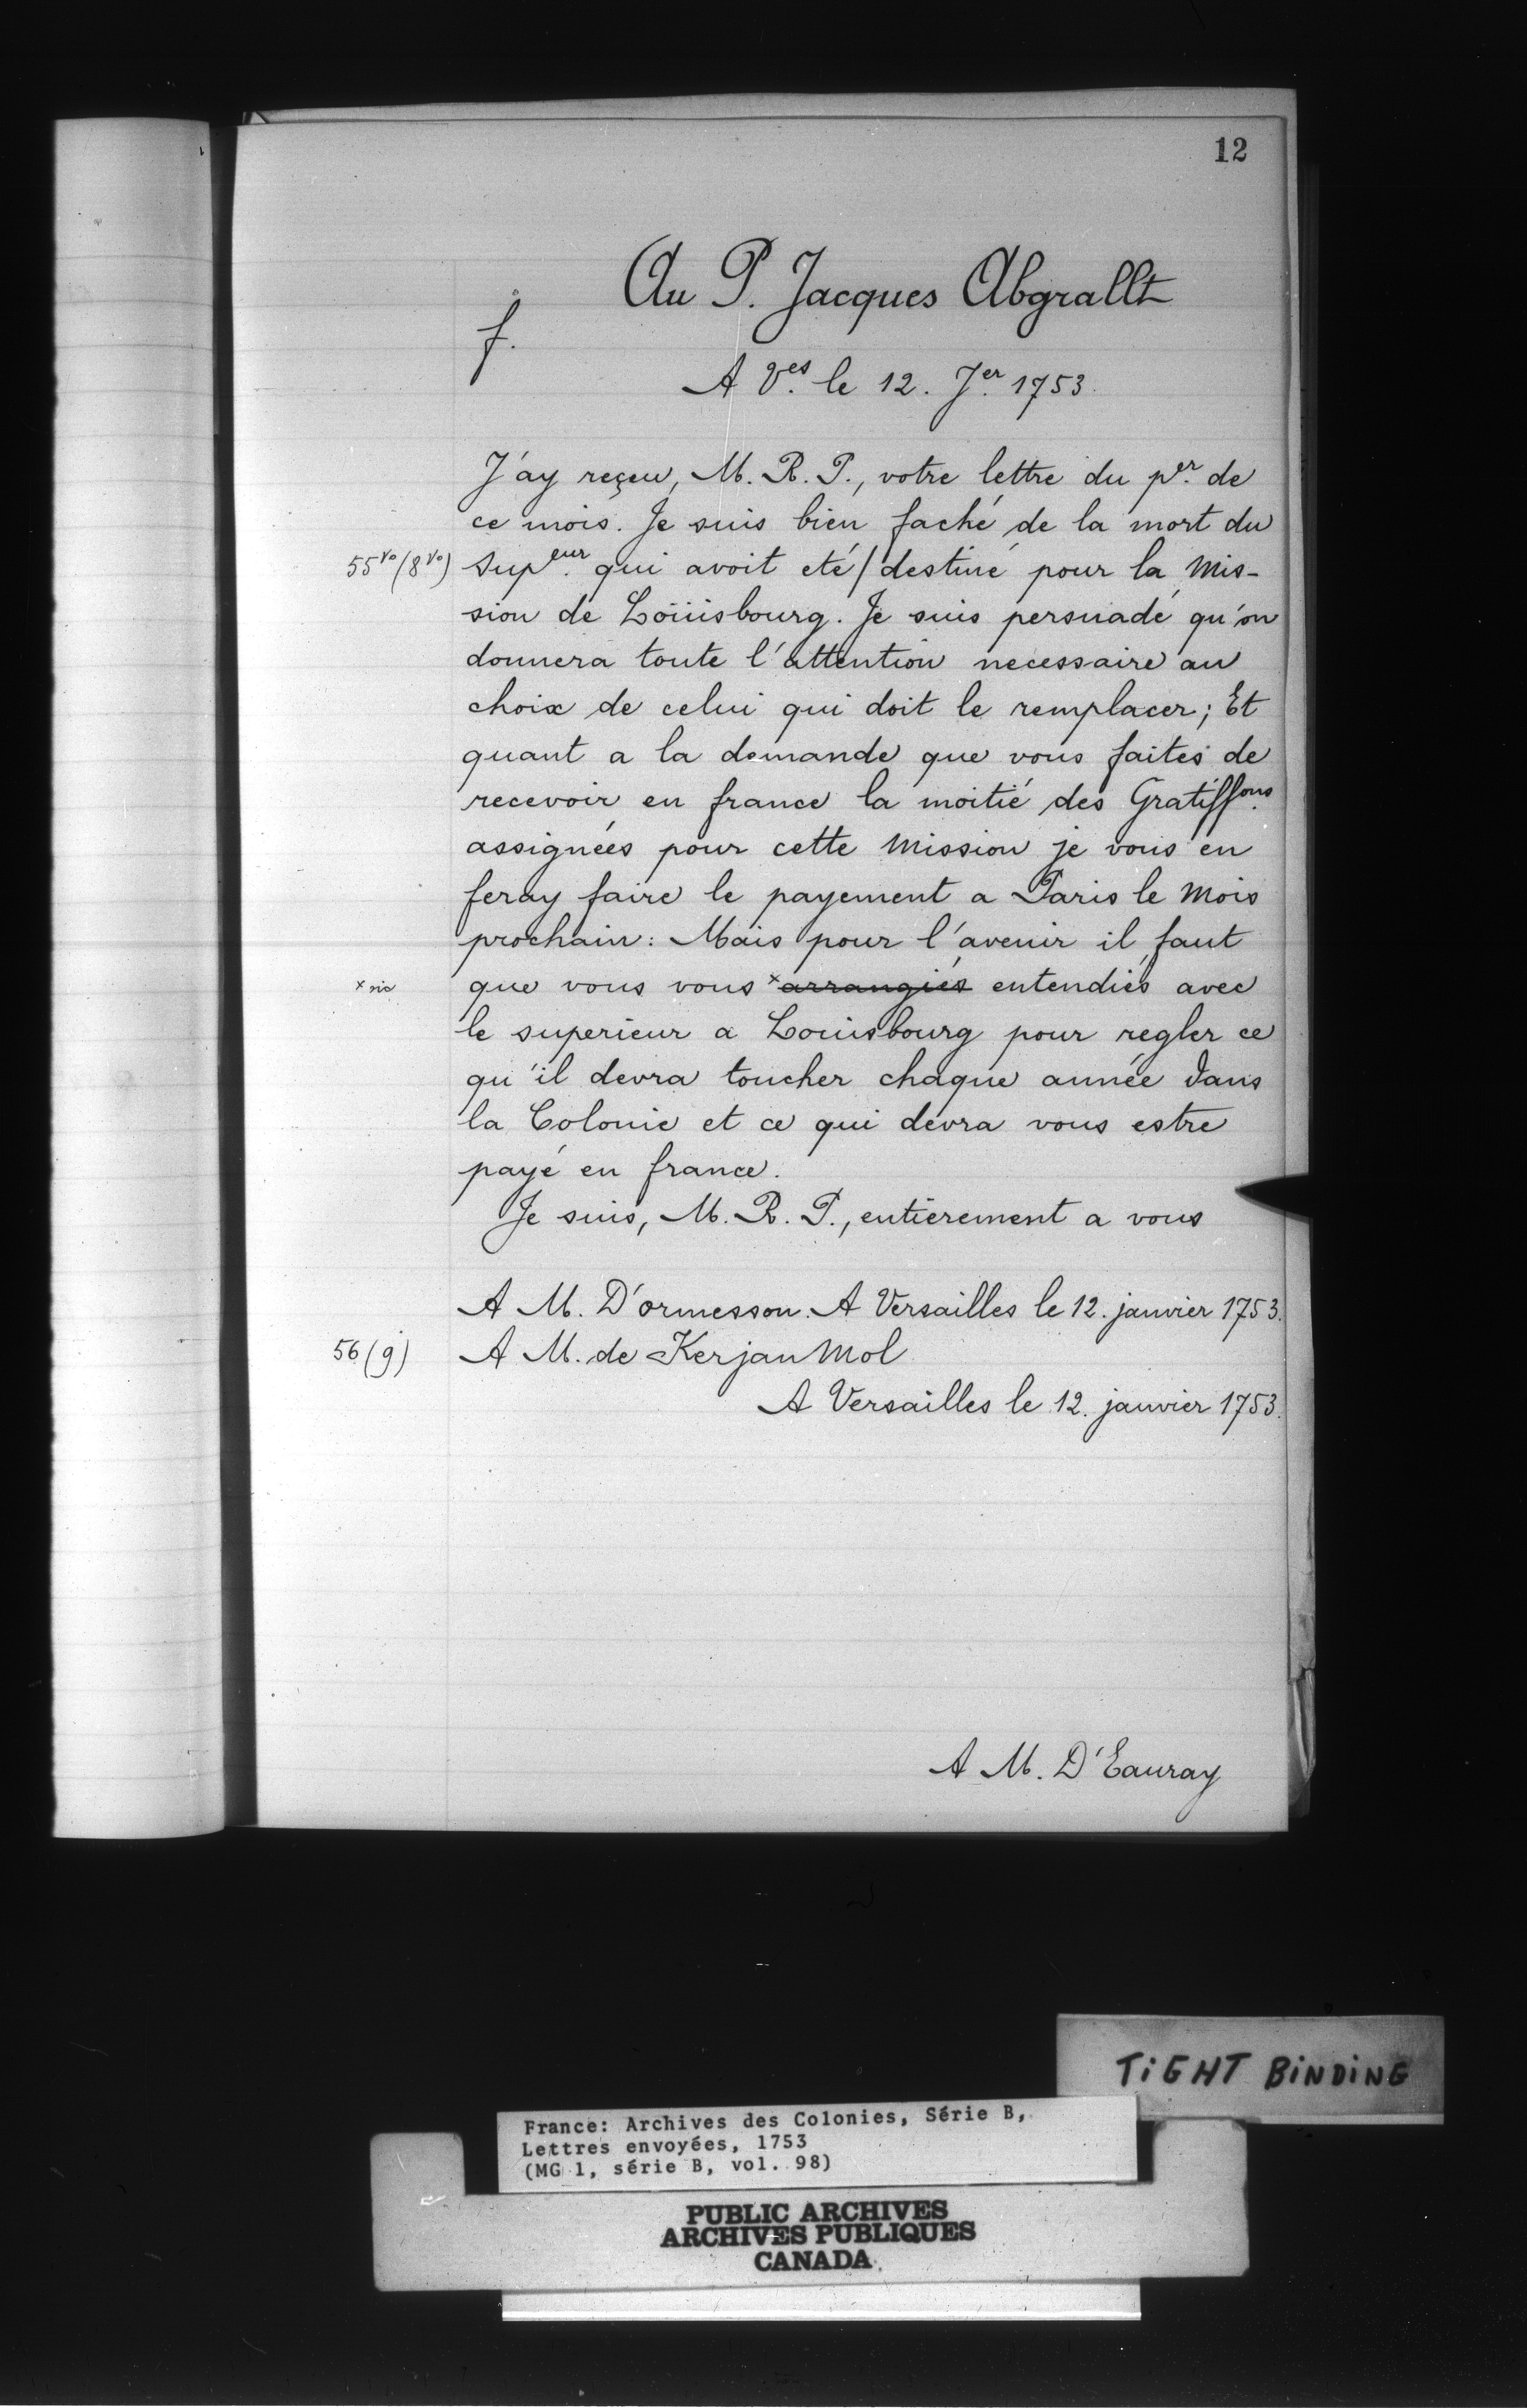 12
Au P. Jacques Abgrallt
f.
A Ves. le 12. Jer. 1753.
J'ay reçeu, M. R. P., votre lettre du per. de
ce mois. Je suis bien faché de la mort du
55vo (8vo) supeur. qui avoit eté / destiné pour la Mis-
sion de Loüisbourg. Je suis persuadé qu'on
donnera toute l'attention necessaire au
choix de celui qui doit le remplacer; Et
quant a la demande que vous faites de
recevoir en france la moitié des Gratiffons.
assignées pour cette Mission je vous en
feray faire le payement a Paris le Mois
prochain: Mais pour l'avenir il faut
x sic que vous vous x arrangiés entendiés avec
le superieur a Louisbourg pour regler ce
qu'il devra toucher chaque année dans
la Colonie et ce qui devra vous estre
payé en france.
Je suis, M. R. P., entierement a vous
A M. D'ormesson. A Versailles le 12. janvier 1753.
56 (9) A M. de Kerjan Mol
A Versailles le 12. janvier 1753.
A M. D'Eauray
TiGHT BiNDiNG
France: Archives des Colonies, Série B,
Lettres envoyées, 1753
(MG 1, série B, vol. 98)
PUBLIC ARCHIVES
ARCHIVES PUBLIQUES
CANADA